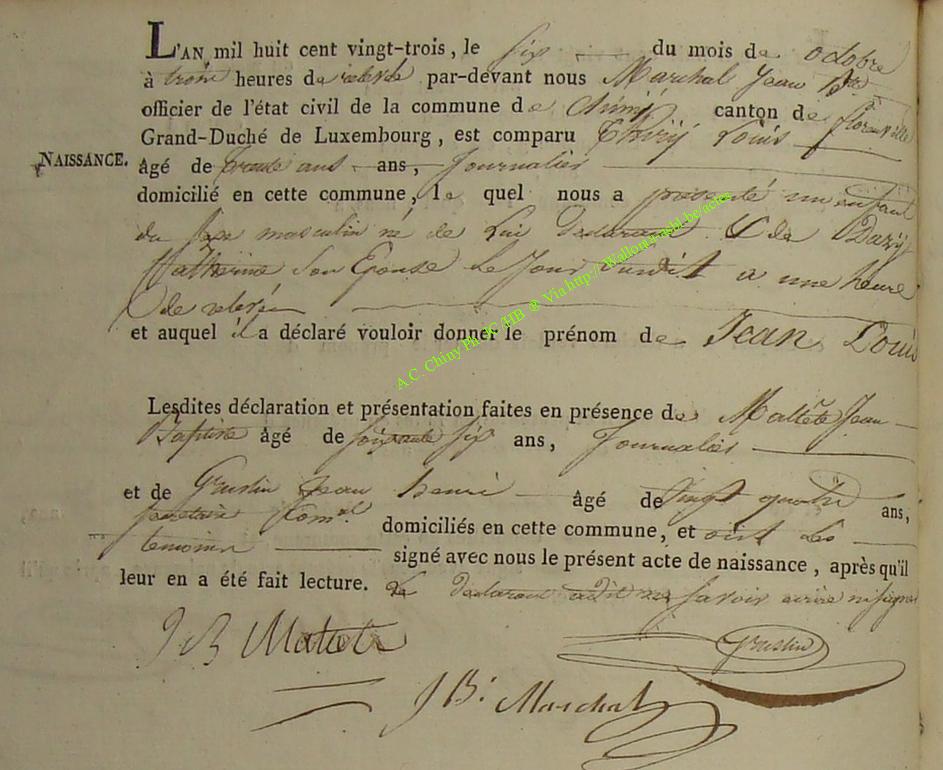 L'AN mil huit cent vingt-trois, le six du mois de octobre
à trois heures de relevée par-devant nous Marchal Jean Bte
officier de l'état civil de la commune de chiny canton de florenville
Grand-Duché de Luxembourg, est comparu Thiry Louis
NAISSANCE. âgé de trente ans ans, Journalier
domicilié en cette commune, le quel nous a présenté un enfant
du sexe masculin né de Lui declarant & de
Catherine Son Epouse Le Jour dudit a une heure
de relevée
et auquel il a déclaré vouloir donner le prénom de Jean Louis
A.C. Chiny Ph. JC HB @ Via http://Wallonia-asbl.be/actes
Lesdites déclaration et présentation faites en présence de Maltête Jean
Baptiste âgé de soixante six ans, Journalier
et de Grustin Jean henri âgé de vingt quatre ans,
secretaire Comal domiciliés en cette commune, et ont Les
temoins signé avec nous le présent acte de naissance, après qu'il
leur en a été fait lecture. Le declarant a dit ne savoir ecrire ni signer
J B Matete
Grustin
J Bt Marchal